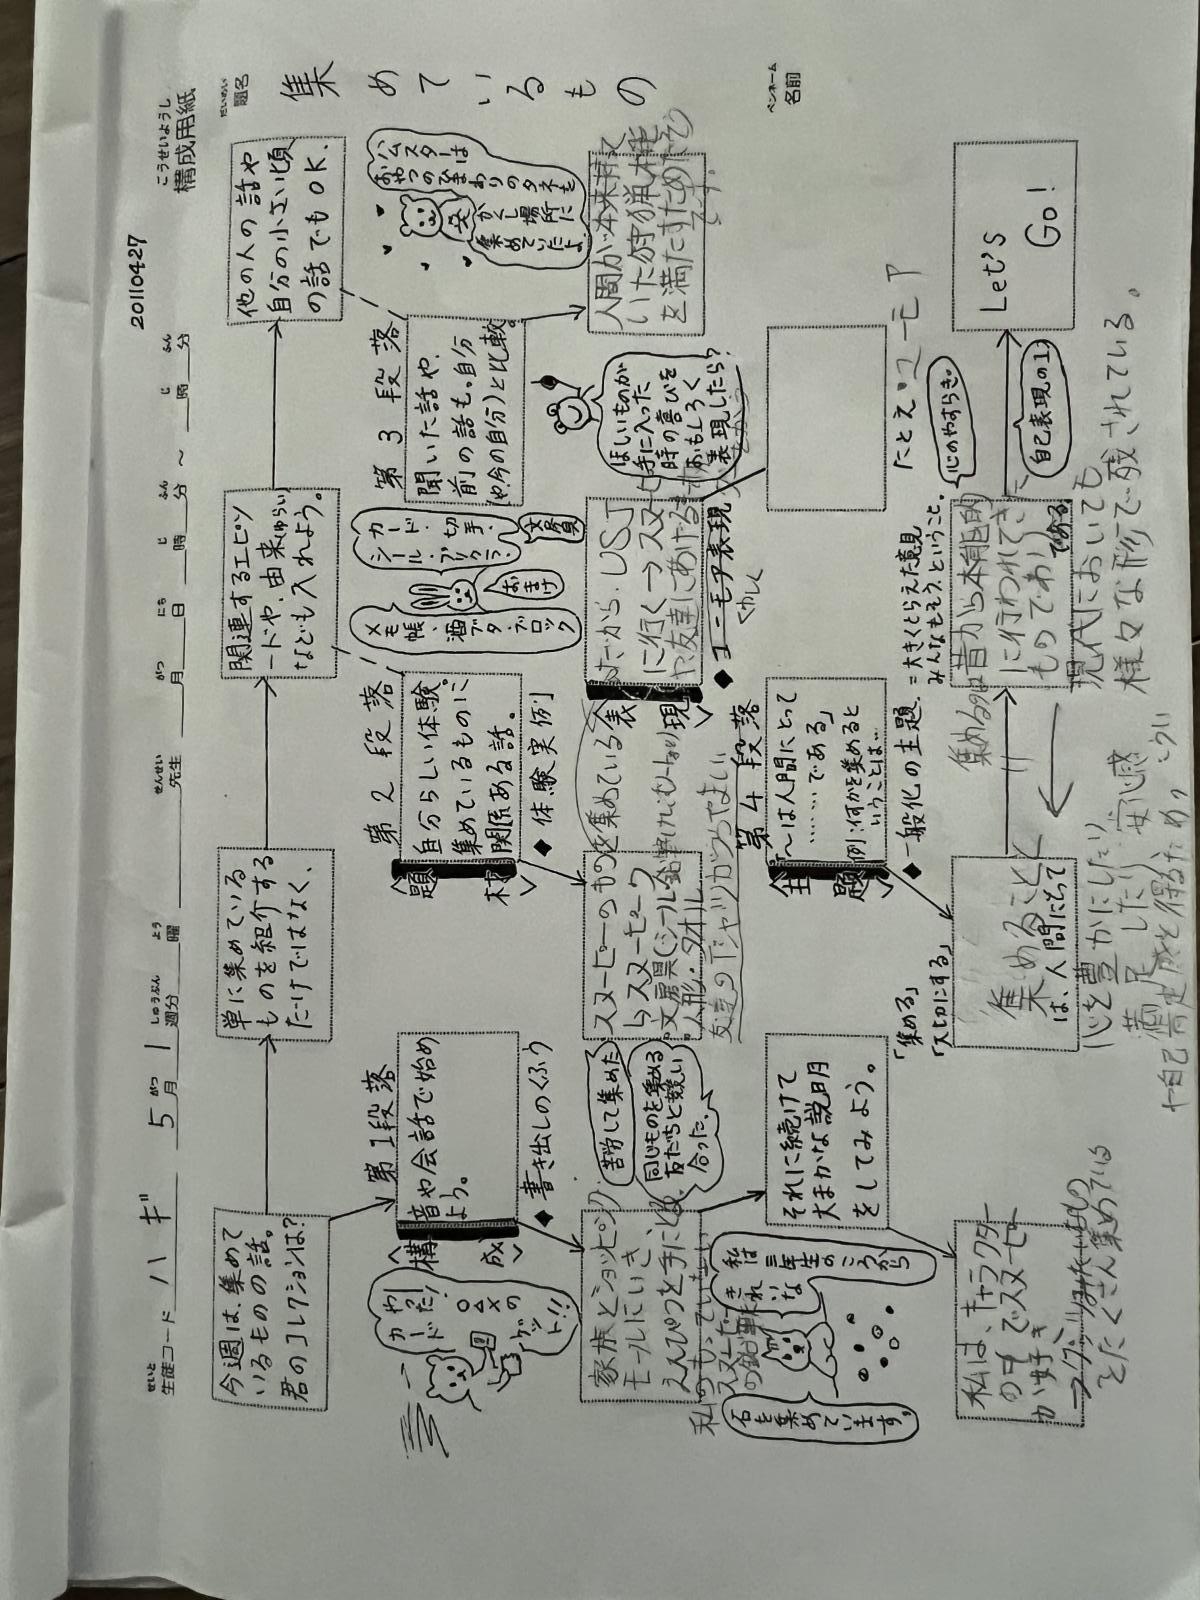 20110427
こうせいようし
構成用紙
せいと
生徒コード ハギ 5月1週分 曜 先生 月 日 時 分 ～ 時 分
だいめい
題名
集めているもの
ペンネーム
名前
今週は、集めて
いるものの話。
君のコレクションは?
単に集めている
ものを紹介する
だけではなく、
関連するエピソ
ードや、由来(ゆらい)
なども入れよう。
他の人の話や
自分の小さい頃
の話でもOK、
第1段落
音や会話で始め
よう。
〈構成〉
◆書き出しのくふう
やった!
カード
○△×の
ゲット!!
第2段落
自分らしい体験。
集めているものに
関係ある話。
〈題材〉
◆体験実例
メモ帳・酒ブタ・ブロック
おまけ
カード・切手・
シール・
文房具
第3段落
聞いた話や、
前の話も。自分
(や今の自分)と比較。
ハムスターは
おやつのひまわりのタネを
かくし場所に
集めていたよ。
家族とショッピング
モールにいき
えんぴつを手にとる。
私のもっていない
スヌーピー
の鉛筆だ
苦労して集めた
同じものを集める
友だちと競い
合った。
スヌーピーのものを集めている
文房具(シール・鉛筆けしむしなり)
人形・タオル
友達のTシャツがうらやましい
〈表現〉
だから、USJ
に行く→スヌー
や友達にあげる
◆ユニーク表現
くわしく
ほしいものが
手に入った
時の喜びを
おもしろく
表現したら?
人間が本来持って
いた狩猟本能
を満たすためだそう
です。
それに続けて
大まかな説明
をしてみよう。
私は
三年生のころから
きれいな
石を集めています。
第4段落
「〜は人間にとって
………である」
例:何かを集めると
いうことは…
〈主題〉
◆一般化の主題
=大きくとらえた意見
みんなもそう、ということ。
たとえ・ユーモア
私は、キャラクター
の中でスヌーピー
が好き
をたくさん集めている
「集める」
「大切にする」
集めること
は、人間にとって
心を豊かにしたり
満足したり 安心感
自己満足感を得るため。
集めるのは
昔から本能的
に行われてきた
ものであり
である。
現代においても
様々な形で残されている。
心のやすらぎ。
自己表現の1つ
Let's
Go!